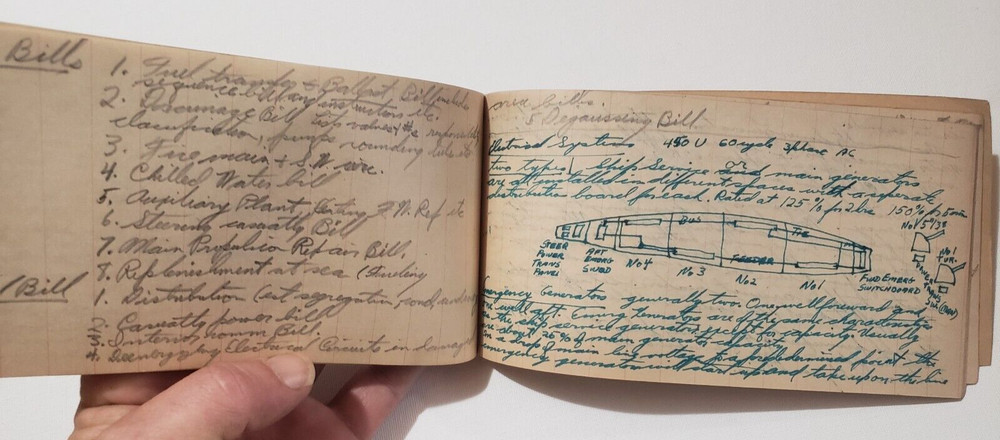 Bills
1. Fuel transfer & Ballast Bill
sequence bill any instructions etc.
2. Drainage Bill
classification, pumps
3. Fire main & S.W. svc.
4. Chilled Water bill
5. Auxiliary Plant, Refr etc
6. Steering casualty Bill
7. Main Propulsion Repair Bill,
8. Replenishment at sea (Fueling
Bill
1. Distribution
2. Casualty power bill
3. Interior Comm Bill.
4. Deenergizing Electrical Circuits in damage
bills.
5 Degaussing Bill
Electrical Systems 450 V 60 cycle 3 phase AC
two types Ship Service main generators
are installed in different spaces with seperate
distribution board for each. Rated at 125% for 2 hrs 150% for 5 min
No1 5"/38
BUS
TIE
STEER
POWER
TRANS
PANEL
AFT
EMERG
SWBD
No 4
No 3
FEEDER
No 2
No 1
FWD EMERG
SWITCHBOARD
No 1
emergency Generators generally two. One well forward and
well aft. Emerg generators are of the same characteristics
the ship service generators except for capacity usually
about 20% of main generator capacity.
a drop of main bus voltage to a predetermined point the
emergency generator will start up and take up on the line